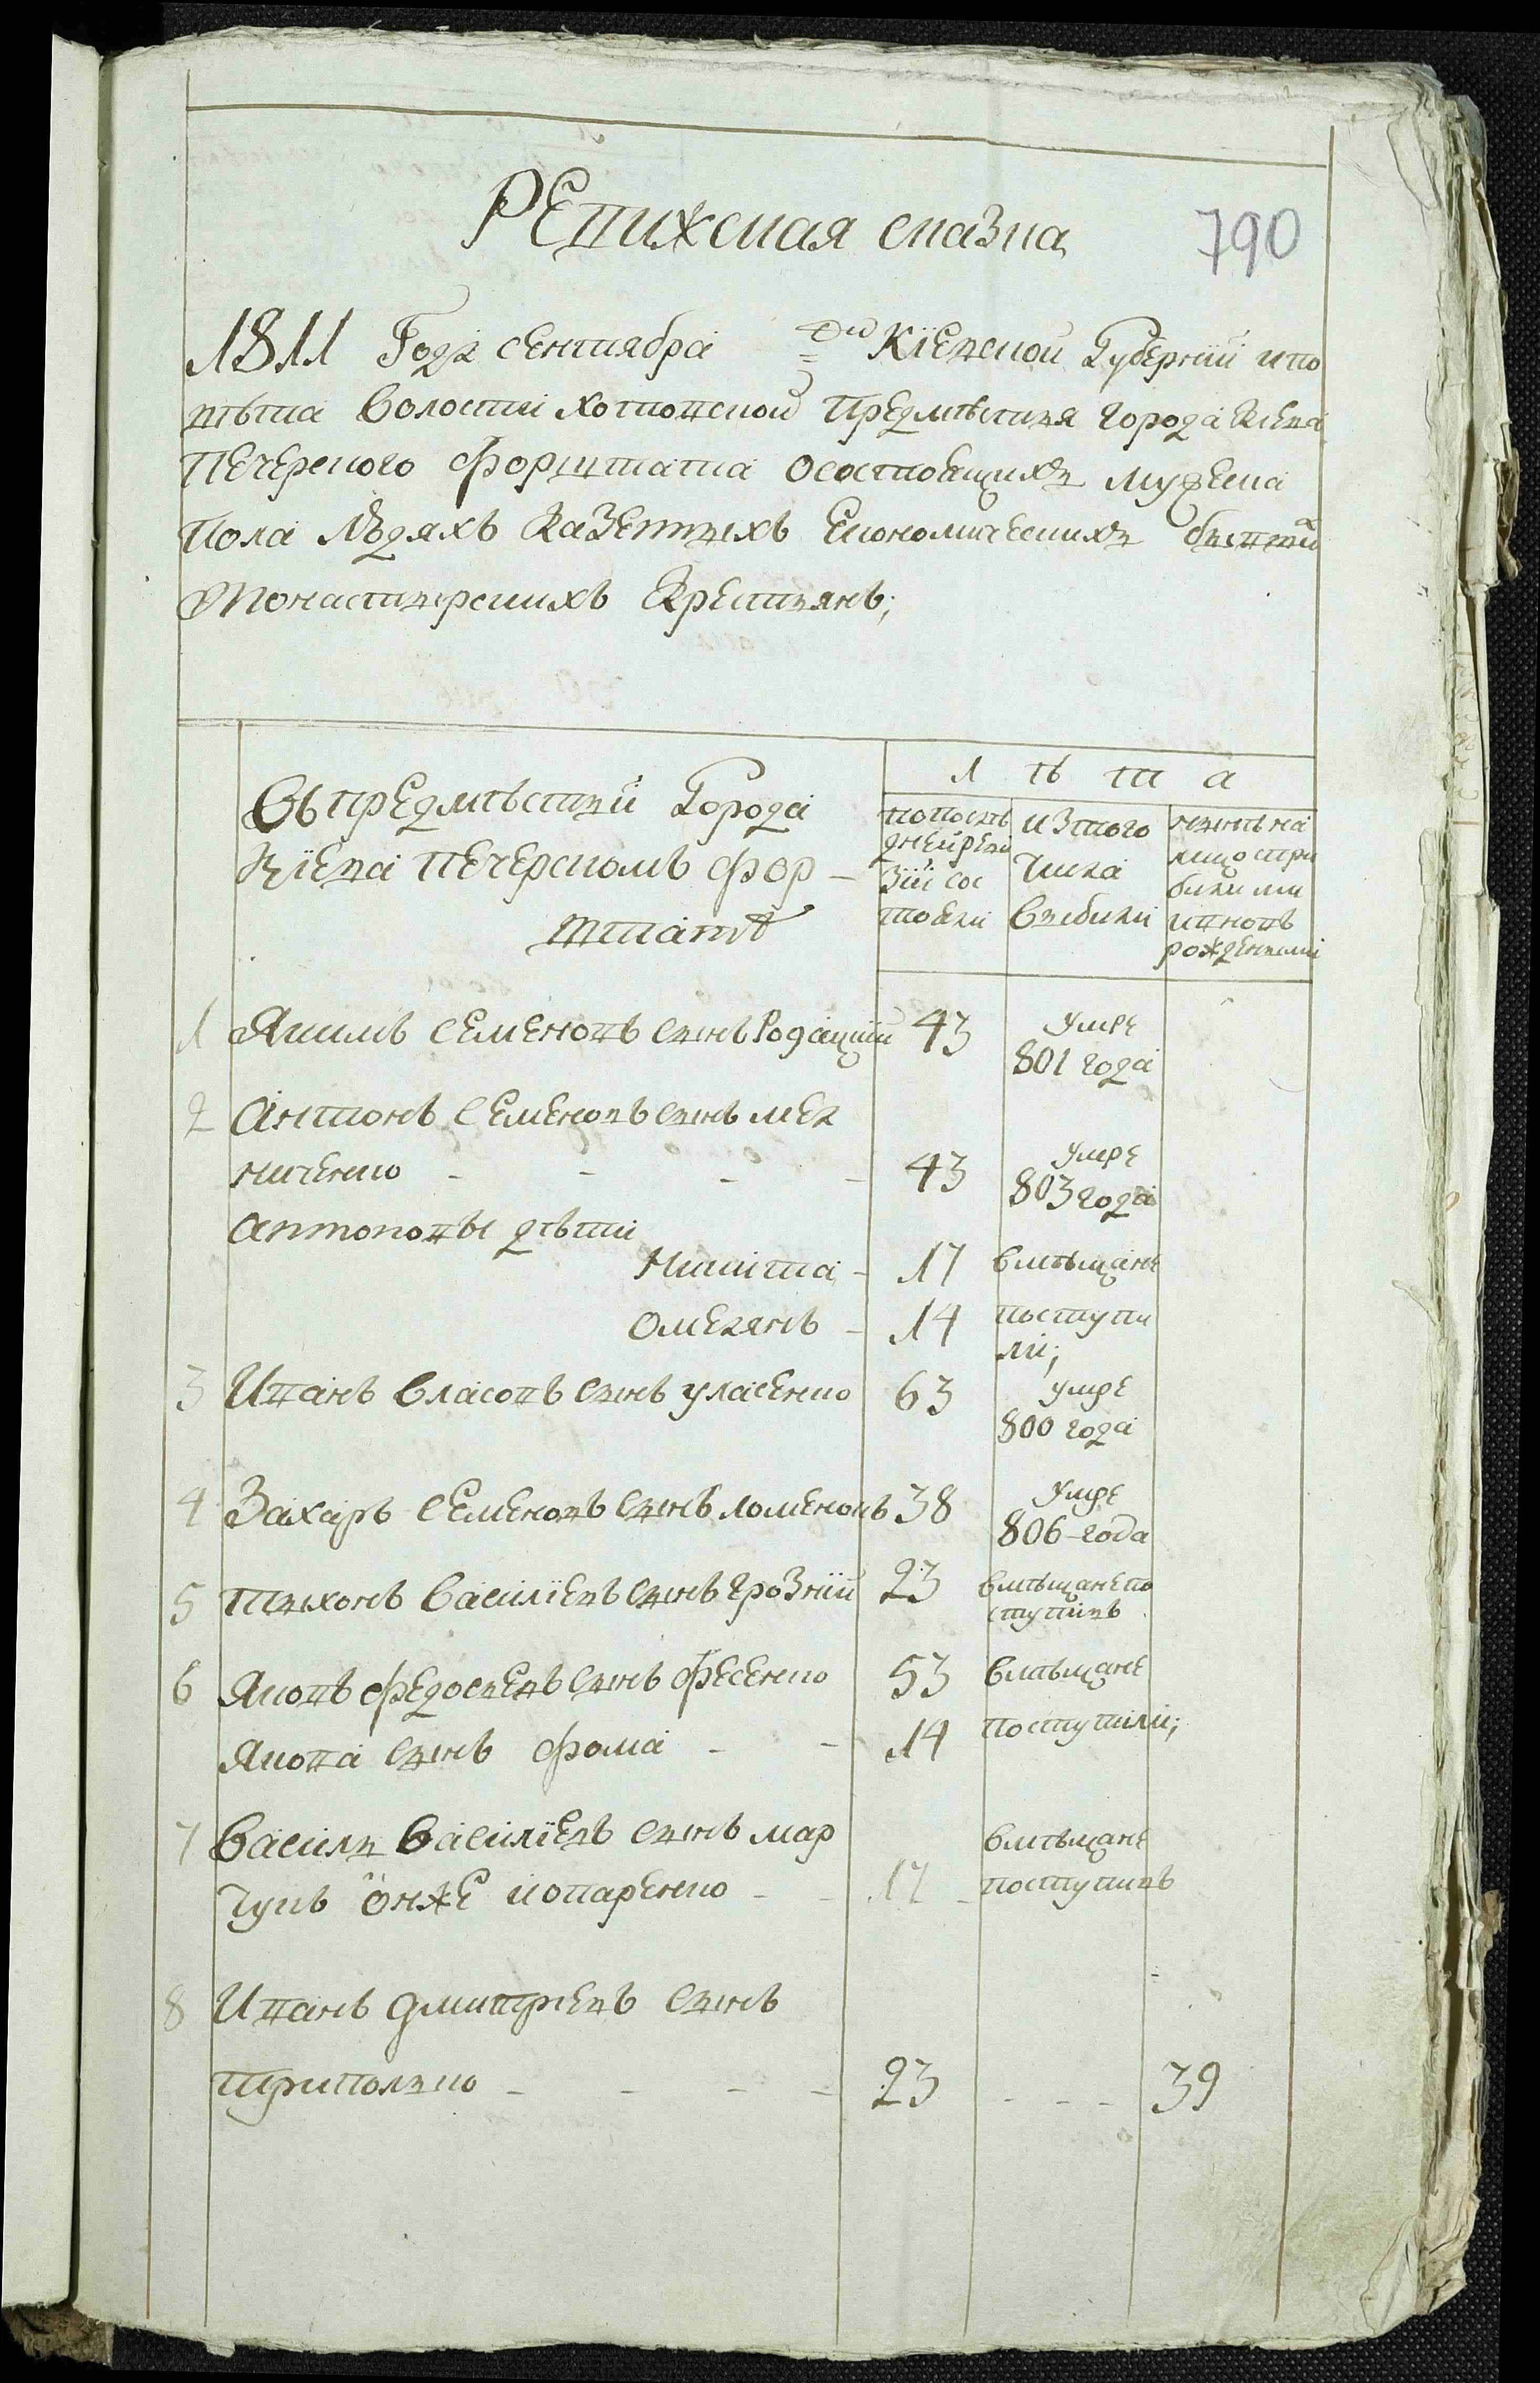 Ревижская сказка
790
1811 Года сентября дня Кїевской Губернїи и по
вѣта Волости хотовской предмѣстья города Кїева
Печерского форштата осостоящихъ мужеска
Пола людяхъ Казенныхъ Економическихъ бывшихъ
Монастырскихъ Крестьянъ;
Въ предмѣстьи Города
Кїева Печерскомъ фор-
штатѣ
Лѣта
по послѣ
дней реви
зїи сос
тояли
изъ того
числа
выбыли
нынѣ на
лицо при
былыми
и новъ
рожденными
1 Якимъ Семеновъ сынъ Родацкїй 43 умре
801 года
2 Антонъ Семеновъ сынъ мел
ниченко - - - - 43 умре
803 года
Антоновы дѣти
Никита - 17 вмѣщане
Омелянъ - 14 поступи
ли;
3 Иванъ Власовъ сынъ уласенко 63 умре
800 года
4 Захаръ Семеновъ сынъ 38 умре
806 года
5 Тыхонъ Василїевъ сынъ грознїй 23 вмѣщане по
ступилъ
6 Яковъ федосѣевъ сынъ фесенко 53 вмѣщане
Якова сынъ фома - - 14 поступили;
7 Василь Василїевъ сынъ мар
чукъ онже 17 вмѣщане
поступилъ
8 Иванъ дмитрїевъ сынъ
Триполько - - - - 23 - - - 39